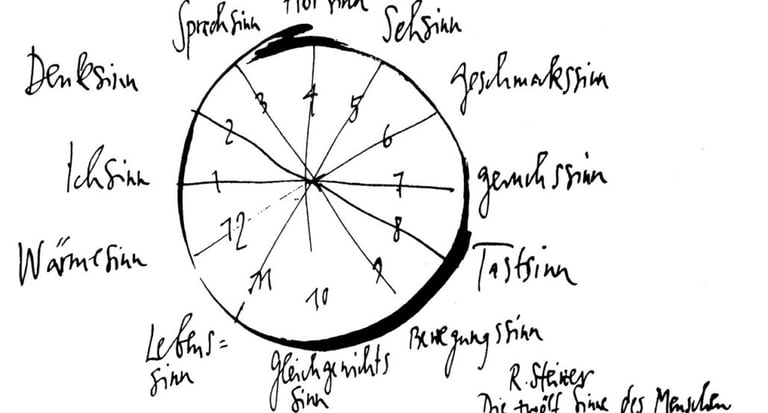 Hörsinn
Sprachsinn
Sehsinn
Denksinn
Geschmackssinn
3 4 5
2 6
Ichsinn
Geruchssinn
1 7
8
12
Wärmesinn
Tastsinn
11 10 9
Lebens=
sinn
Gleichgewichts
sinn
Bewegungssinn
R. Steiner
Die zwölf Sinne des Menschen